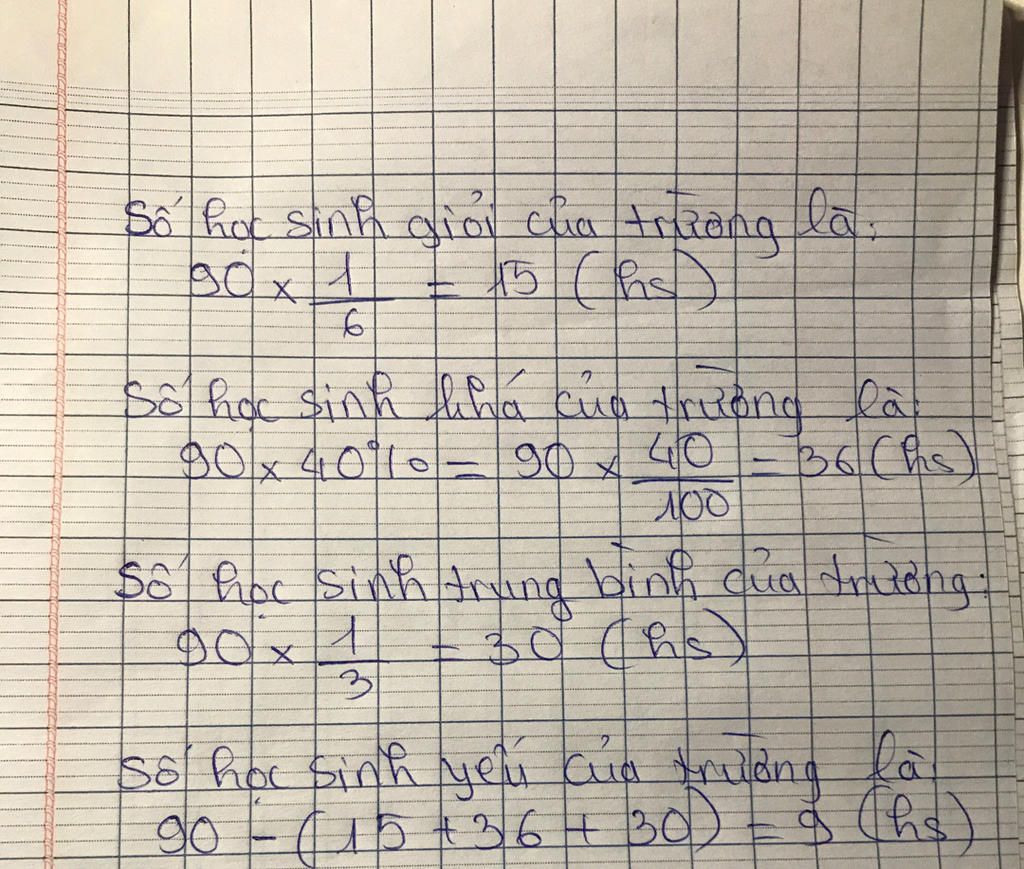 Số học sinh giỏi của trường là:
90 × 1/6 = 15 (hs)
Số học sinh khá của trường là:
90 × 40% = 90 × 40/100 = 36 (hs)
Số học sinh trung bình của trường:
90 × 1/3 = 30 (hs)
Số học sinh yếu của trường là
90 - (15 + 36 + 30) = 9 (hs)